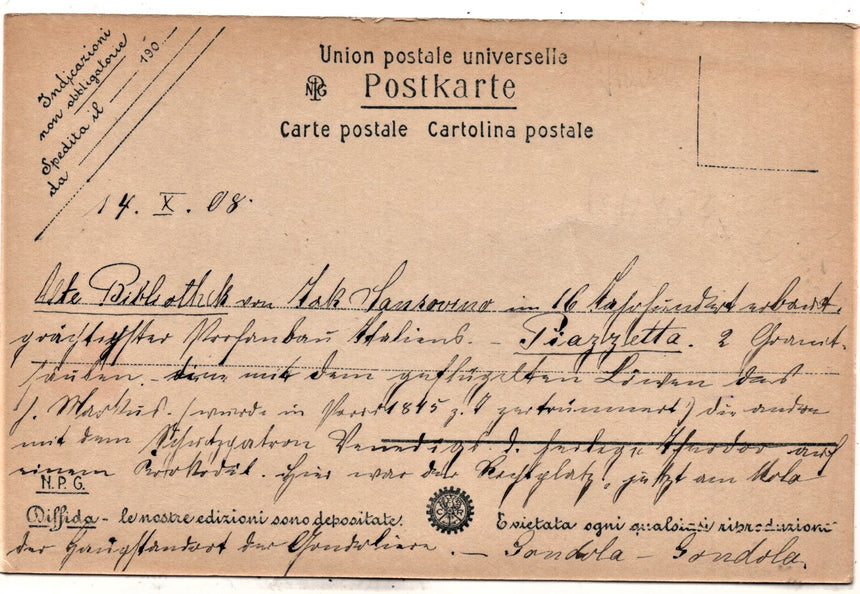 Indicazioni
non obbligatorie
Spedita il 190
da
Union postale universelle
NPG Postkarte
Carte postale Cartolina postale
14. X. 08.
Alte Bibliothek von Jak Sansovino im 16 Jahrhundert erbaut.
prächtigster Profanbau Italiens. – Piazzetta. 2 Granit-
säulen. eine mit dem geflügelten Löwen des
h. Markus. (wurde in Paris 1815 z. T zertrümmert) die andre
mit dem Schutzpatron Venedigs d. heilige Theodor auf
einem Krokodil. Hier war der Richtplatz, jetzt am Molo
N.P.G.
Diffida - le nostre edizioni sono depositate. E vietata ogni qualsiasi riproduzione
der Hauptstandort der Gondoliere. – Gondola – Gondola.